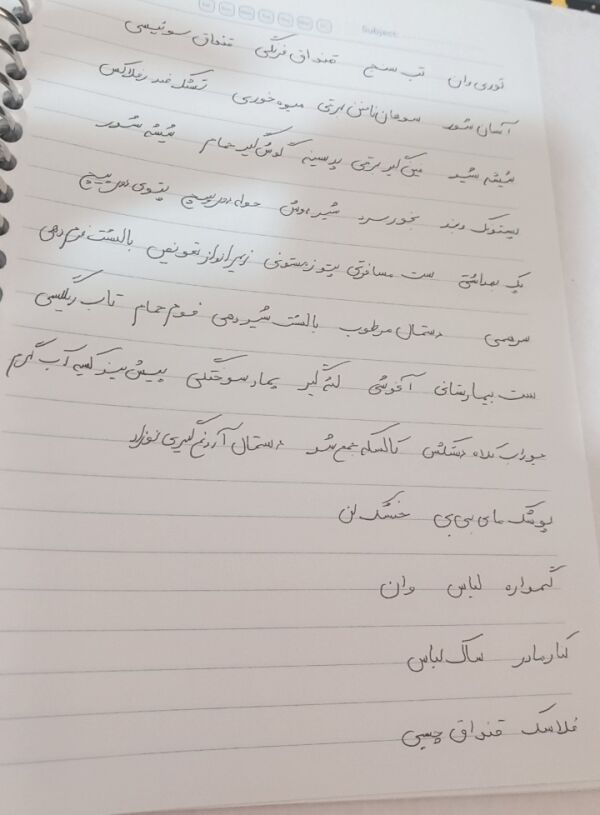 Subject:
توری وان تب سنج قنداق فرنگی قنداق سوئیسی
آسان شور سوهان ناخن برقی میوه خوری تشک ضد رفلاکس
شیشه شیر برقی پد سینه گوش گیر حمام شیشه شور
پستونک و بند بخور سرد شیر دوش حوله دورپیچ پتوی دورپیچ
پک بهداشتی ست مسافرتی پتو زمستونی زیرانداز تعویض بالشت فرم دهی
سرهمی دستمال مرطوب بالشت شیردهی فوم حمام تاب رگلیسی
ست بیمارستانی آغوشی لگه گیر پماد سوختگی پیش بند کیسه آب گرم
جوراب کلاه دستکش کالسکه جمع شو دستمال آروغ گیری نوزاد
پوشک مای بی بی خشک کن
گهواره لباس وان
کنار مادر ساک لباس
فلاسک قنداق چسبی